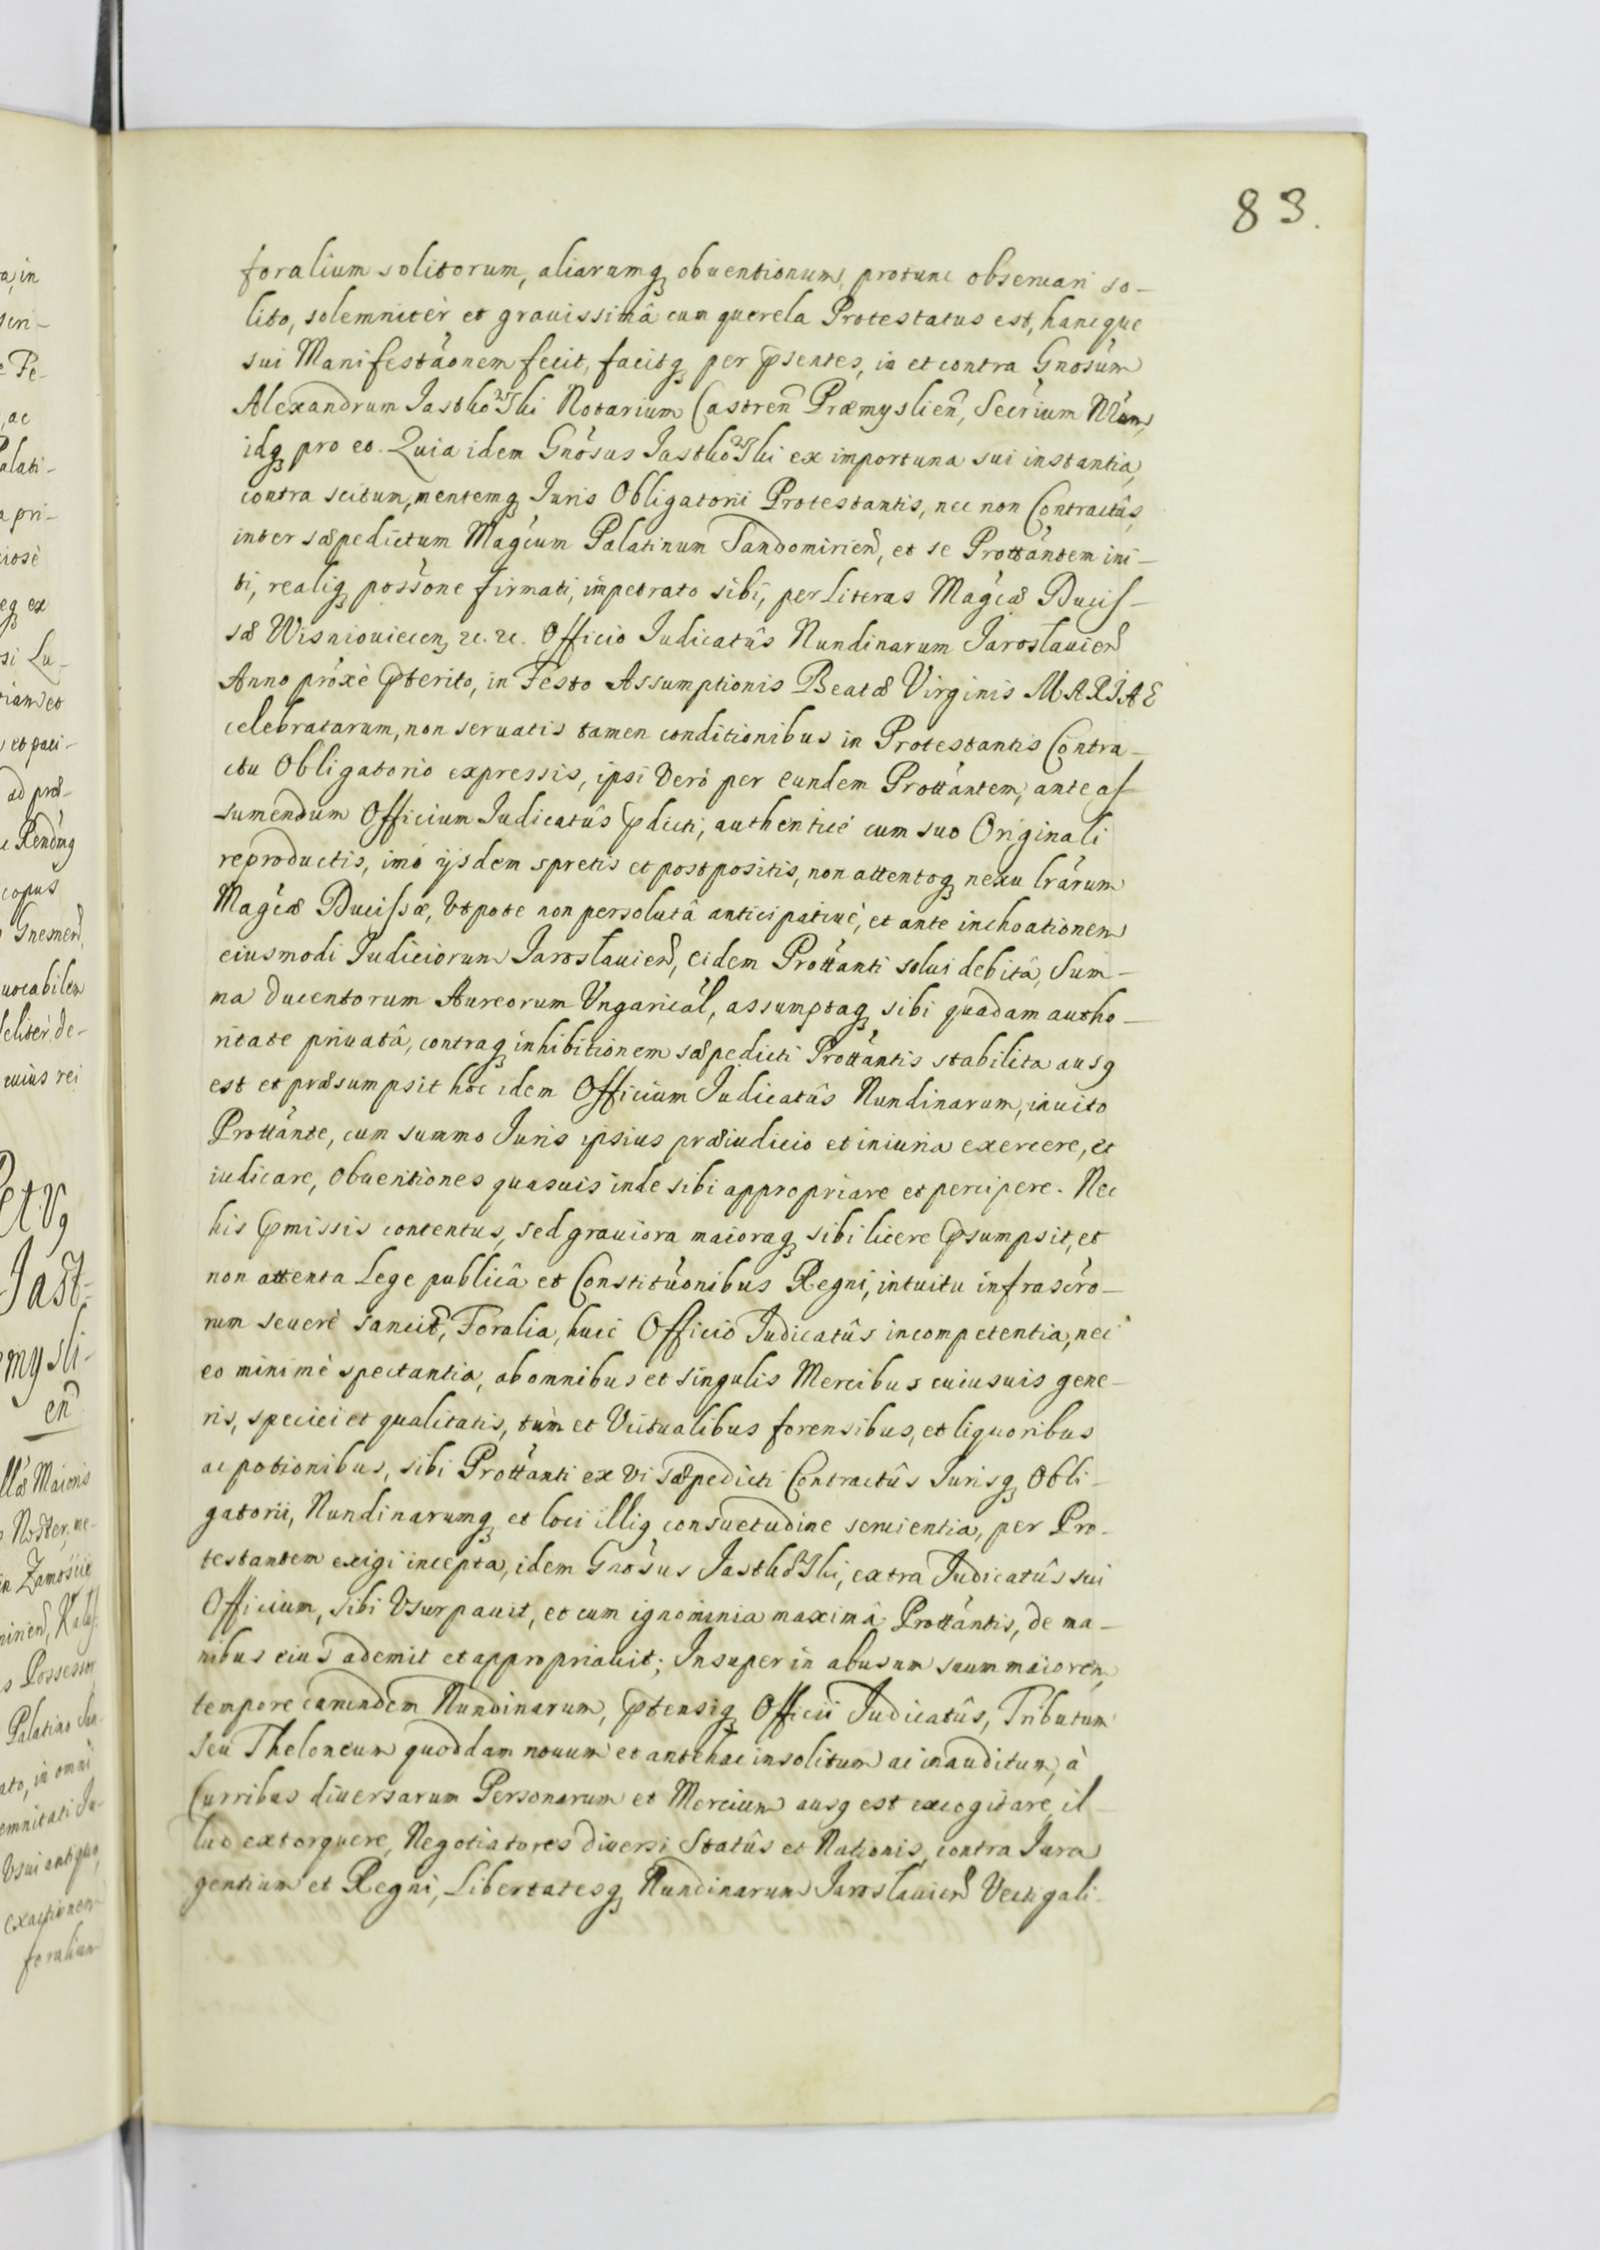 83.
foralium solitorum, aliarumq obuentionum, protunc obseruari so-
lito, solemnitèr et grauissimâ cum querela Protestatus est, hancque
sui Manifestãonem fecit, facitq per pñtes, in et contra Gnosum
Alexandrum Jastkowski Notarium Castreñ Præmyslieñ, Secrium Nrum,
idq pro eo. Quia idem Gnosus Jastkowski ex importuna sui instantia,
contra scitum, mentemq Juris Obligatorii Protestantis, nec non Contractûs,
inter sæpedictum Magcum Palatinum Sandomirieñ, et se Prottantem ini-
ti, realiq possone firmati, impetrato sibi, per Literas Magcæ Ducis-
sæ Wisniouiecen, etc. etc. Officio Judicatûs Nundinarum Jaroslauieñ
Anno próxè pterito, in Festo Assumptionis Beatæ Virginis MARIAE
celebratarum, non seruatis tamen conditionibus in Protestantis Contra-
ctu Obligatorio expressis, ipsi verò per eundem Prottantem, ante as-
sumendum Officium Judicatûs pdicti, authenticè cum suo Originali
reproductis, imò ijsdem spretis et postpositis, non attentoq nexu lrarum
Magcæ Ducissæ, Vtpote non persolutâ anticipatiuè, et ante inchoationem
eiusmodi Judiciorum Jaroslauieñ, eidem Prottanti solui debitâ, Sum-
ma ducentorum Aureorum Vngarical, assumptaq sibi quadam autho-
ritate priuatâ, contraq inhibitionem sæpedicti Prottantis stabilita ausq
est et præsumpsit hoc idem Officium Judicatûs Nundinarum, inuito
Prottante, cum summo Juris ipsius præiudicio et iniuria exercere, et
iudicare, obuentiones quasuis inde sibi appropriare et percipere. Nec
his pmissis contentus, sed grauiora maioraq sibi licere psumpsit, et
non attenta Lege publicâ et Constitũonibus Regni, intuitu infrascro-
rum seuerè sancit, Foralia, huic Officio Judicatûs incompetentia, nec
eo minimè spectantia, ab omnibus et singulis Mercibus cuiusuis gene-
ris, speciei et qualitatis, tùm et Victualibus forensibus, et liquoribus
ac potionibus, sibi Prottanti ex vi sæpedicti Contractûs Jurisq Obli-
gatorii, Nundinarumq et loci illiq consuetudine seruientia, per Pro-
testantem exigi incepta, idem Gnosus Jastkowski, extra Judicatûs sui
Officium, sibi Vsurpauit, et cum ignominia maximâ Prottantis, de ma-
nibus eius ademit et appropriauit; Insuper in abusum suum maiorem,
tempore earundem Nundinarum, ptensiq Officii Judicatûs, Tributum
seu Theloneum quoddam nouum et antehac insolitum ac inauditum, à
Curribus diuersarum Personarum et Mercium ausq est excogitare, il-
lud extorquere, Negotiatores diuersi Statûs et Nationis, contra Jura
gentium et Regni, Libertatesq Nundinarum Jaroslauieñ Vectigali-